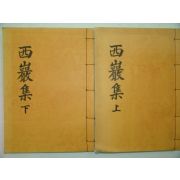 西巖集 上
西巖集 下